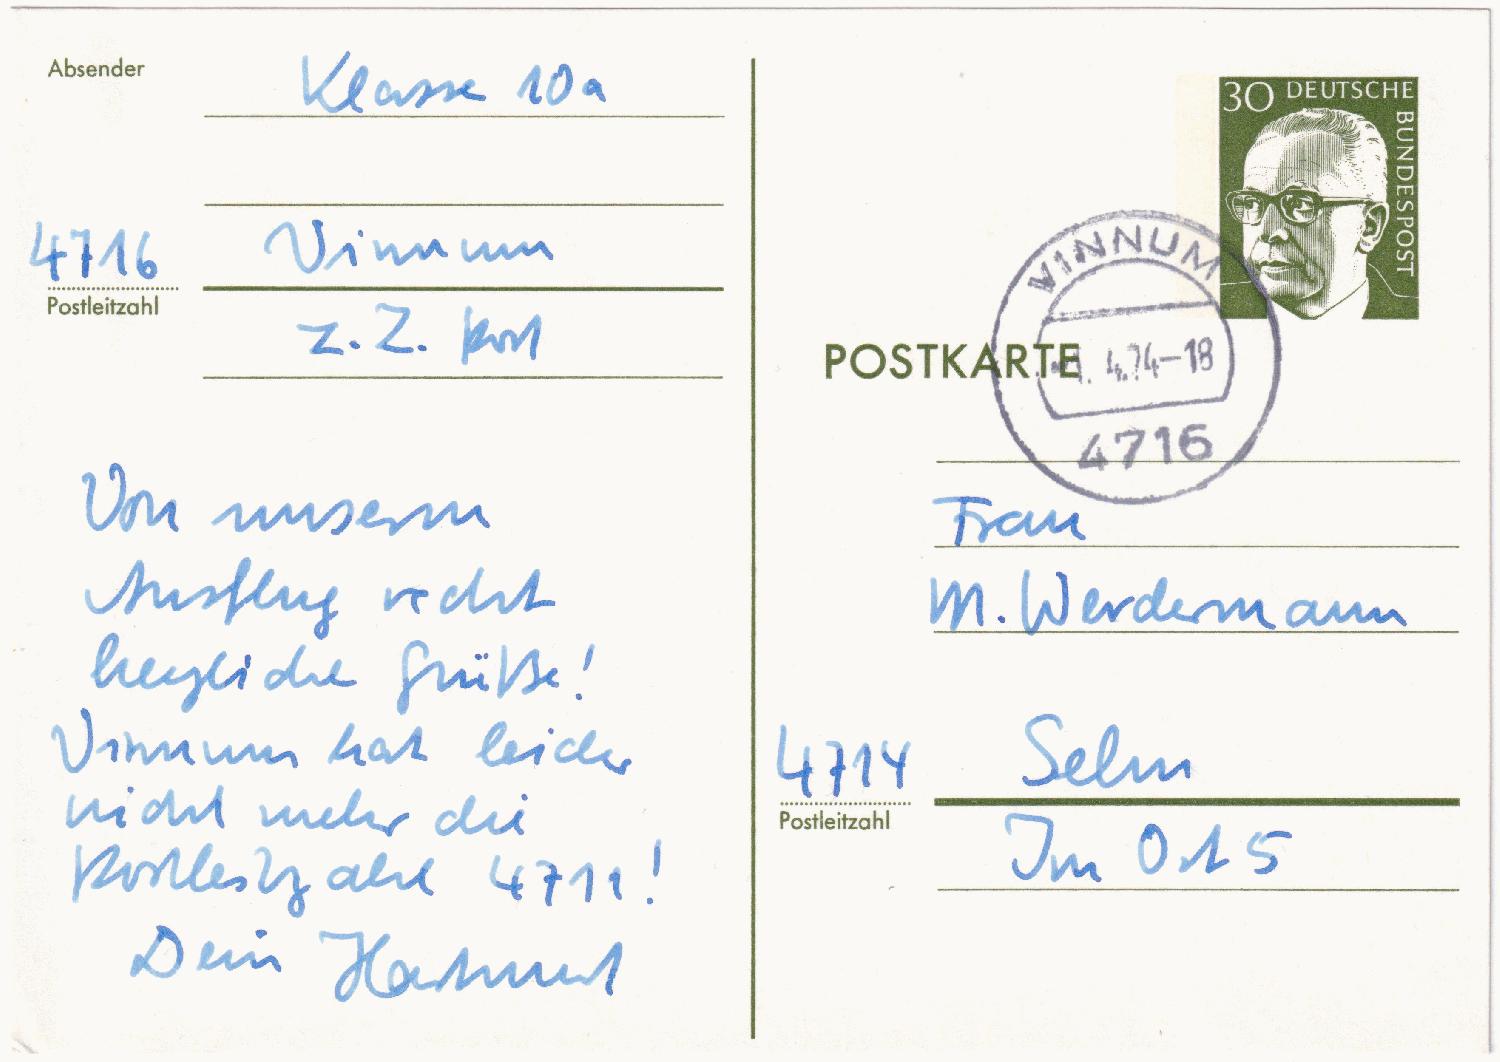 Absender
Klasse 10a
4716 Vinnum
Postleitzahl
z. Z. Post
Von unserm
Ausflug recht
herzliche Grüße!
Vinnum hat leider
nicht mehr die
Postleitzahl 4711!
Dein Hartmut
30 DEUTSCHE BUNDESPOST
VINNUM
4.74-18
4716
POSTKARTE
Frau
M. Werdermann
4714 Selm
Postleitzahl
Im Ort 5